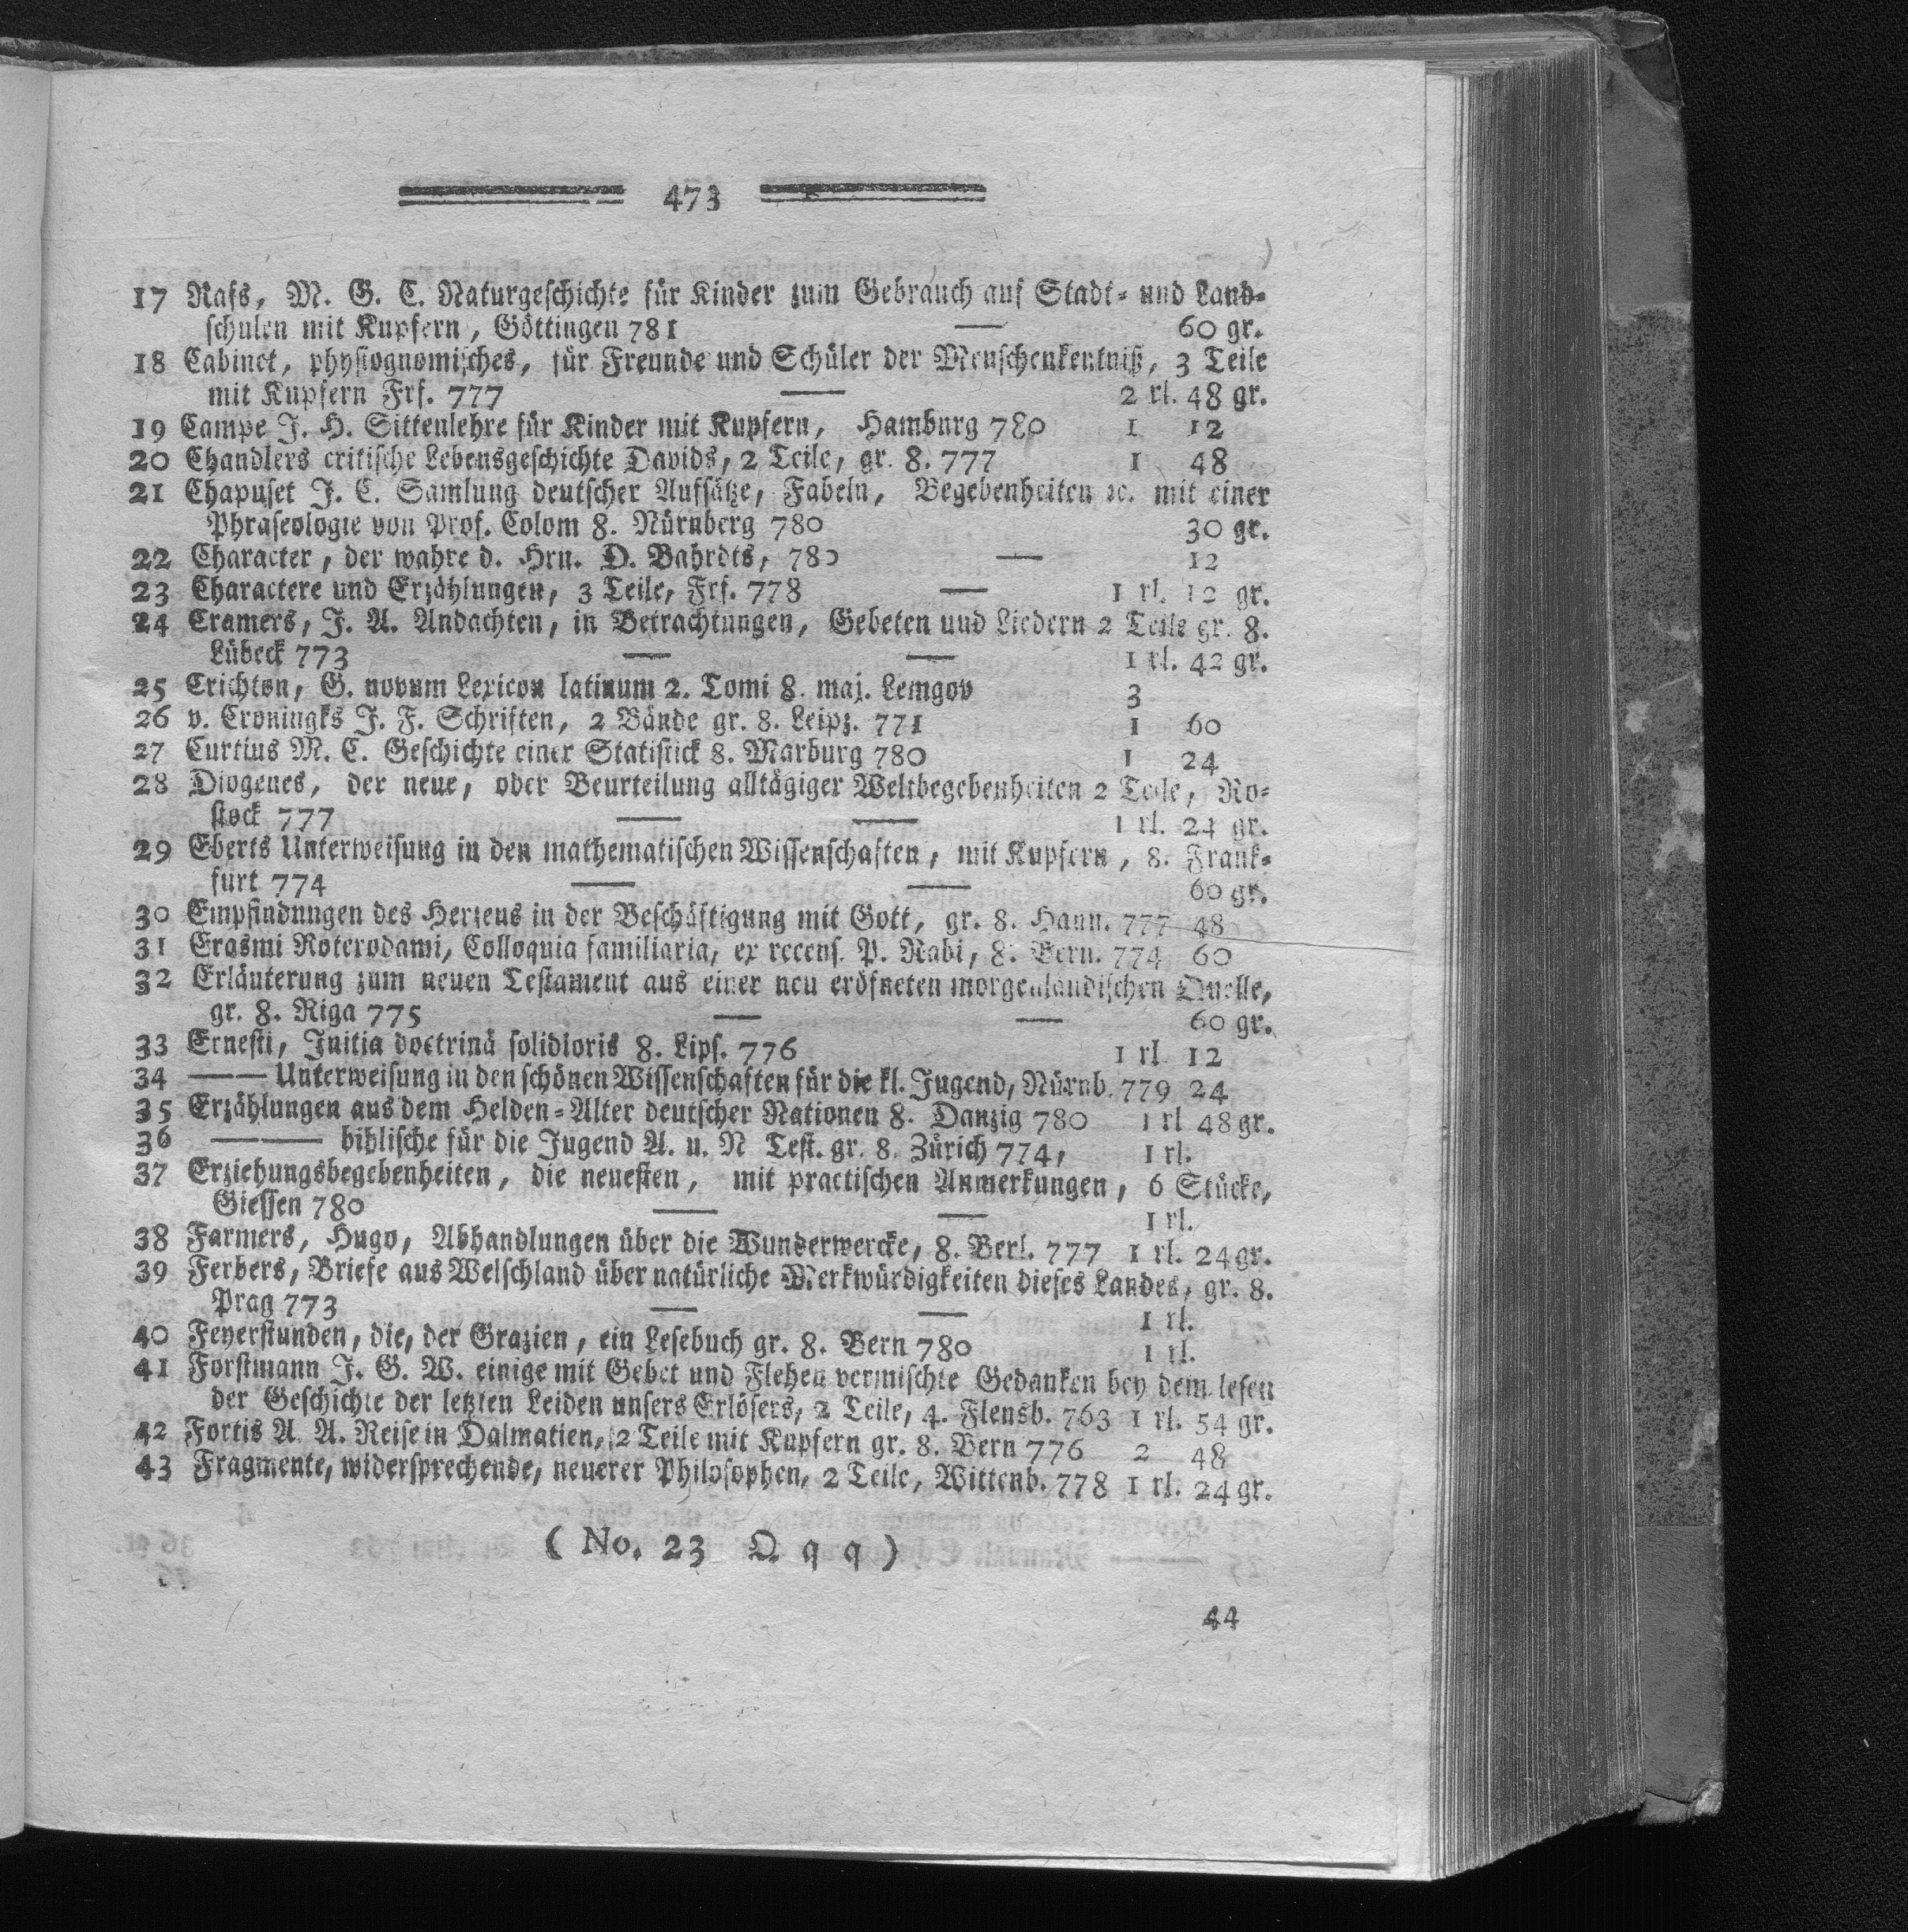 473
17 Rafs, M. G. C. Naturgeschichte für Kinder zum Gebrauch auf Stadt- und Land-
schulen mit Kupfern, Göttingen 781 — 60 gr.
18 Cabinet, physiognomisches, für Freunde und Schüler der Menschenkentniß, 3 Teile
mit Kupfern Frf. 777 — 2 rl. 48 gr.
19 Campe J. H. Sittenlehre für Kinder mit Kupfern, Hamburg 780 1 12
20 Chandlers critische Lebensgeschichte Davids, 2 Teile, gr. 8. 777 1 48
21 Chapuset J. C. Samlung deutscher Aufsätze, Fabeln, Begebenheiten ꝛc. mit einer
Phraseologie von Prof. Colom 8. Nürnberg 780 30 gr.
22 Character, der wahre d. Hrn. D. Bahrdts, 780 — 12
23 Charactere und Erzählungen, 3 Teile, Frf. 778 — 1 rl. 12 gr.
24 Cramers, J. A. Andachten, in Betrachtungen, Gebeten und Liedern 2 Teile gr. 8.
Lübeck 773 — — 1 rl. 42 gr.
25 Crichton, G. novum Lexicon latinum 2. Tomi 8. maj. Lemgov 3
26 v. Croningks J. F. Schriften, 2 Bände gr. 8. Leipz. 771 1 60
27 Curtius M. C. Geschichte einer Statistick 8. Marburg 780 1 24
28 Diogenes, der neue, oder Beurteilung alltägiger Weltbegebenheiten 2 Teile, Ro-
stock 777 — — 1 rl. 24 gr.
29 Eberts Unterweisung in den mathematischen Wissenschaften, mit Kupfern, 8. Frank-
furt 774 — — 60 gr.
30 Empfindungen des Herzens in der Beschäftigung mit Gott, gr. 8. Hann. 777 48
31 Erasmi Roterodami, Colloquia familiaria, ex recens. P. Rabi, 8. Bern. 774 60
32 Erläuterung zum neuen Testament aus einer neu eröfneten morgenländischen Quelle,
gr. 8. Riga 775 — — 60 gr.
33 Ernesti, Initia doctrinä solidioris 8. Lips. 776 1 rl. 12
34 —— Unterweisung in den schönen Wissenschaften für die kl. Jugend, Nürnb. 779 24
35 Erzählungen aus dem Helden-Alter deutscher Nationen 8. Danzig 780 1 rl 48 gr.
36 —— biblische für die Jugend A. u. N Test. gr. 8. Zürich 774, 1 rl.
37 Erziehungsbegebenheiten, die neuesten, mit practischen Anmerkungen, 6 Stücke,
Giessen 780 — — 1 rl.
38 Farmers, Hugo, Abhandlungen über die Wunderwercke, 8. Berl. 777 1 rl. 24 gr.
39 Ferbers, Briefe aus Welschland über natürliche Merkwürdigkeiten dieses Landes, gr. 8.
Prag 773 — — 1 rl.
40 Feyerstunden, die, der Grazien, ein Lesebuch gr. 8. Bern 780 1 rl.
41 Forstmann J. G. W. einige mit Gebet und Flehen vermischte Gedanken bey dem lesen
der Geschichte der letzten Leiden unsers Erlösers, 2 Teile, 4. Flensb. 763 1 rl. 54 gr.
42 Fortis A. A. Reise in Dalmatien, 2 Teile mit Kupfern gr. 8. Bern 776 2 48
43 Fragmente, widersprechende, neuerer Philosophen, 2 Teile, Wittenb. 778 1 rl. 24 gr.
(No. 23 Q q q)
44